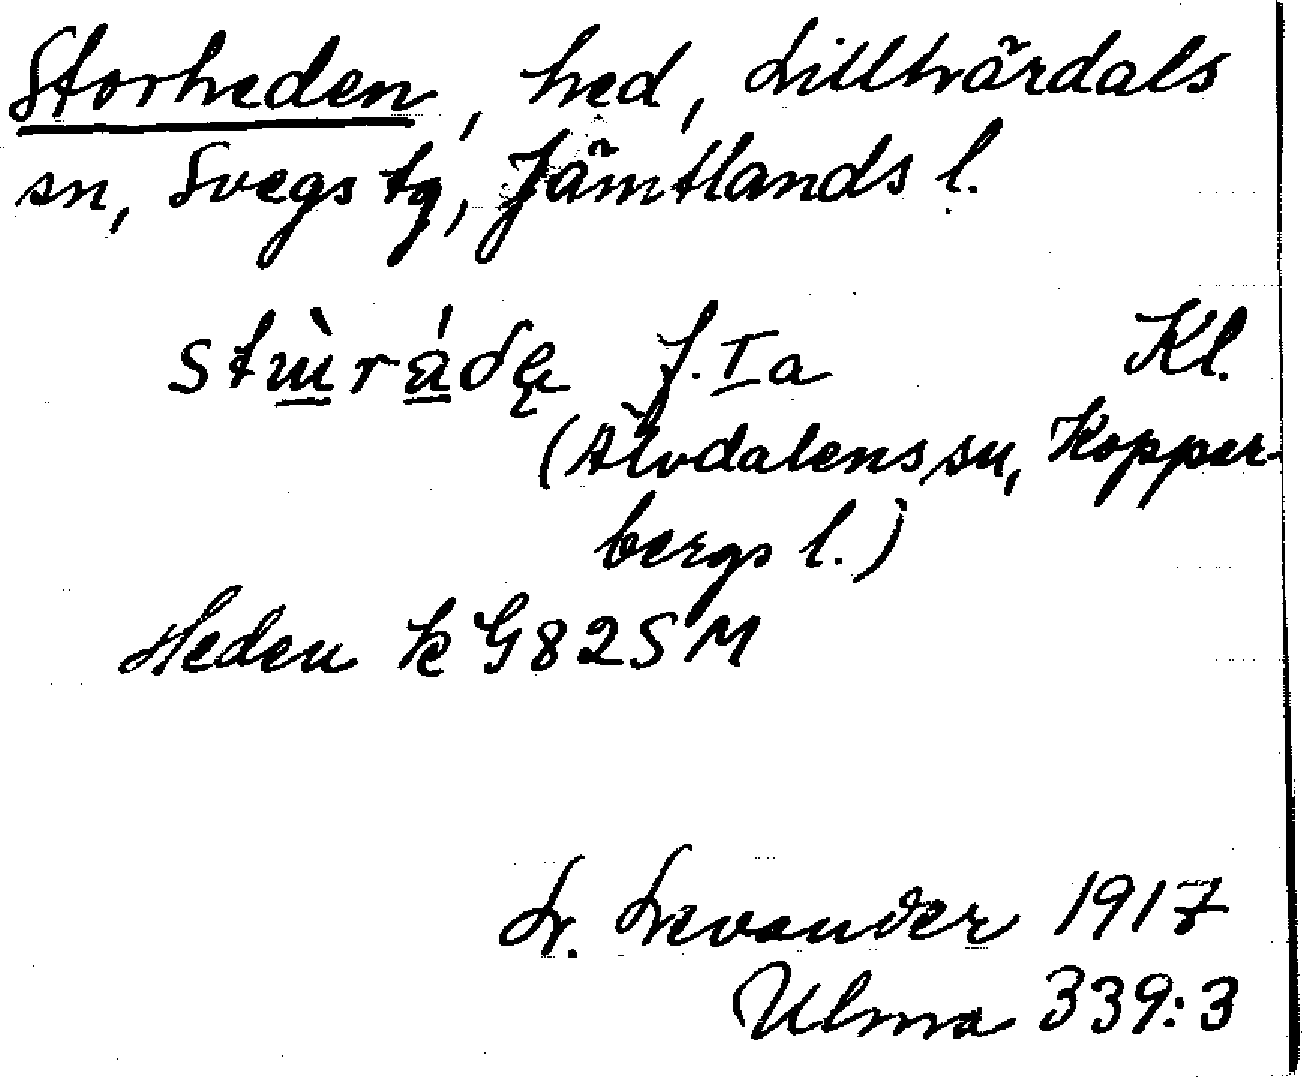 Storheden, hed, Lillhärdals
sn, Svegs tg, Jämtlands l.
f. Ia Kl.
(Älvdalens sn, Koppar-
bergs l.)
Heden k G82SM
L. Levander 1917
Ulma 339:3